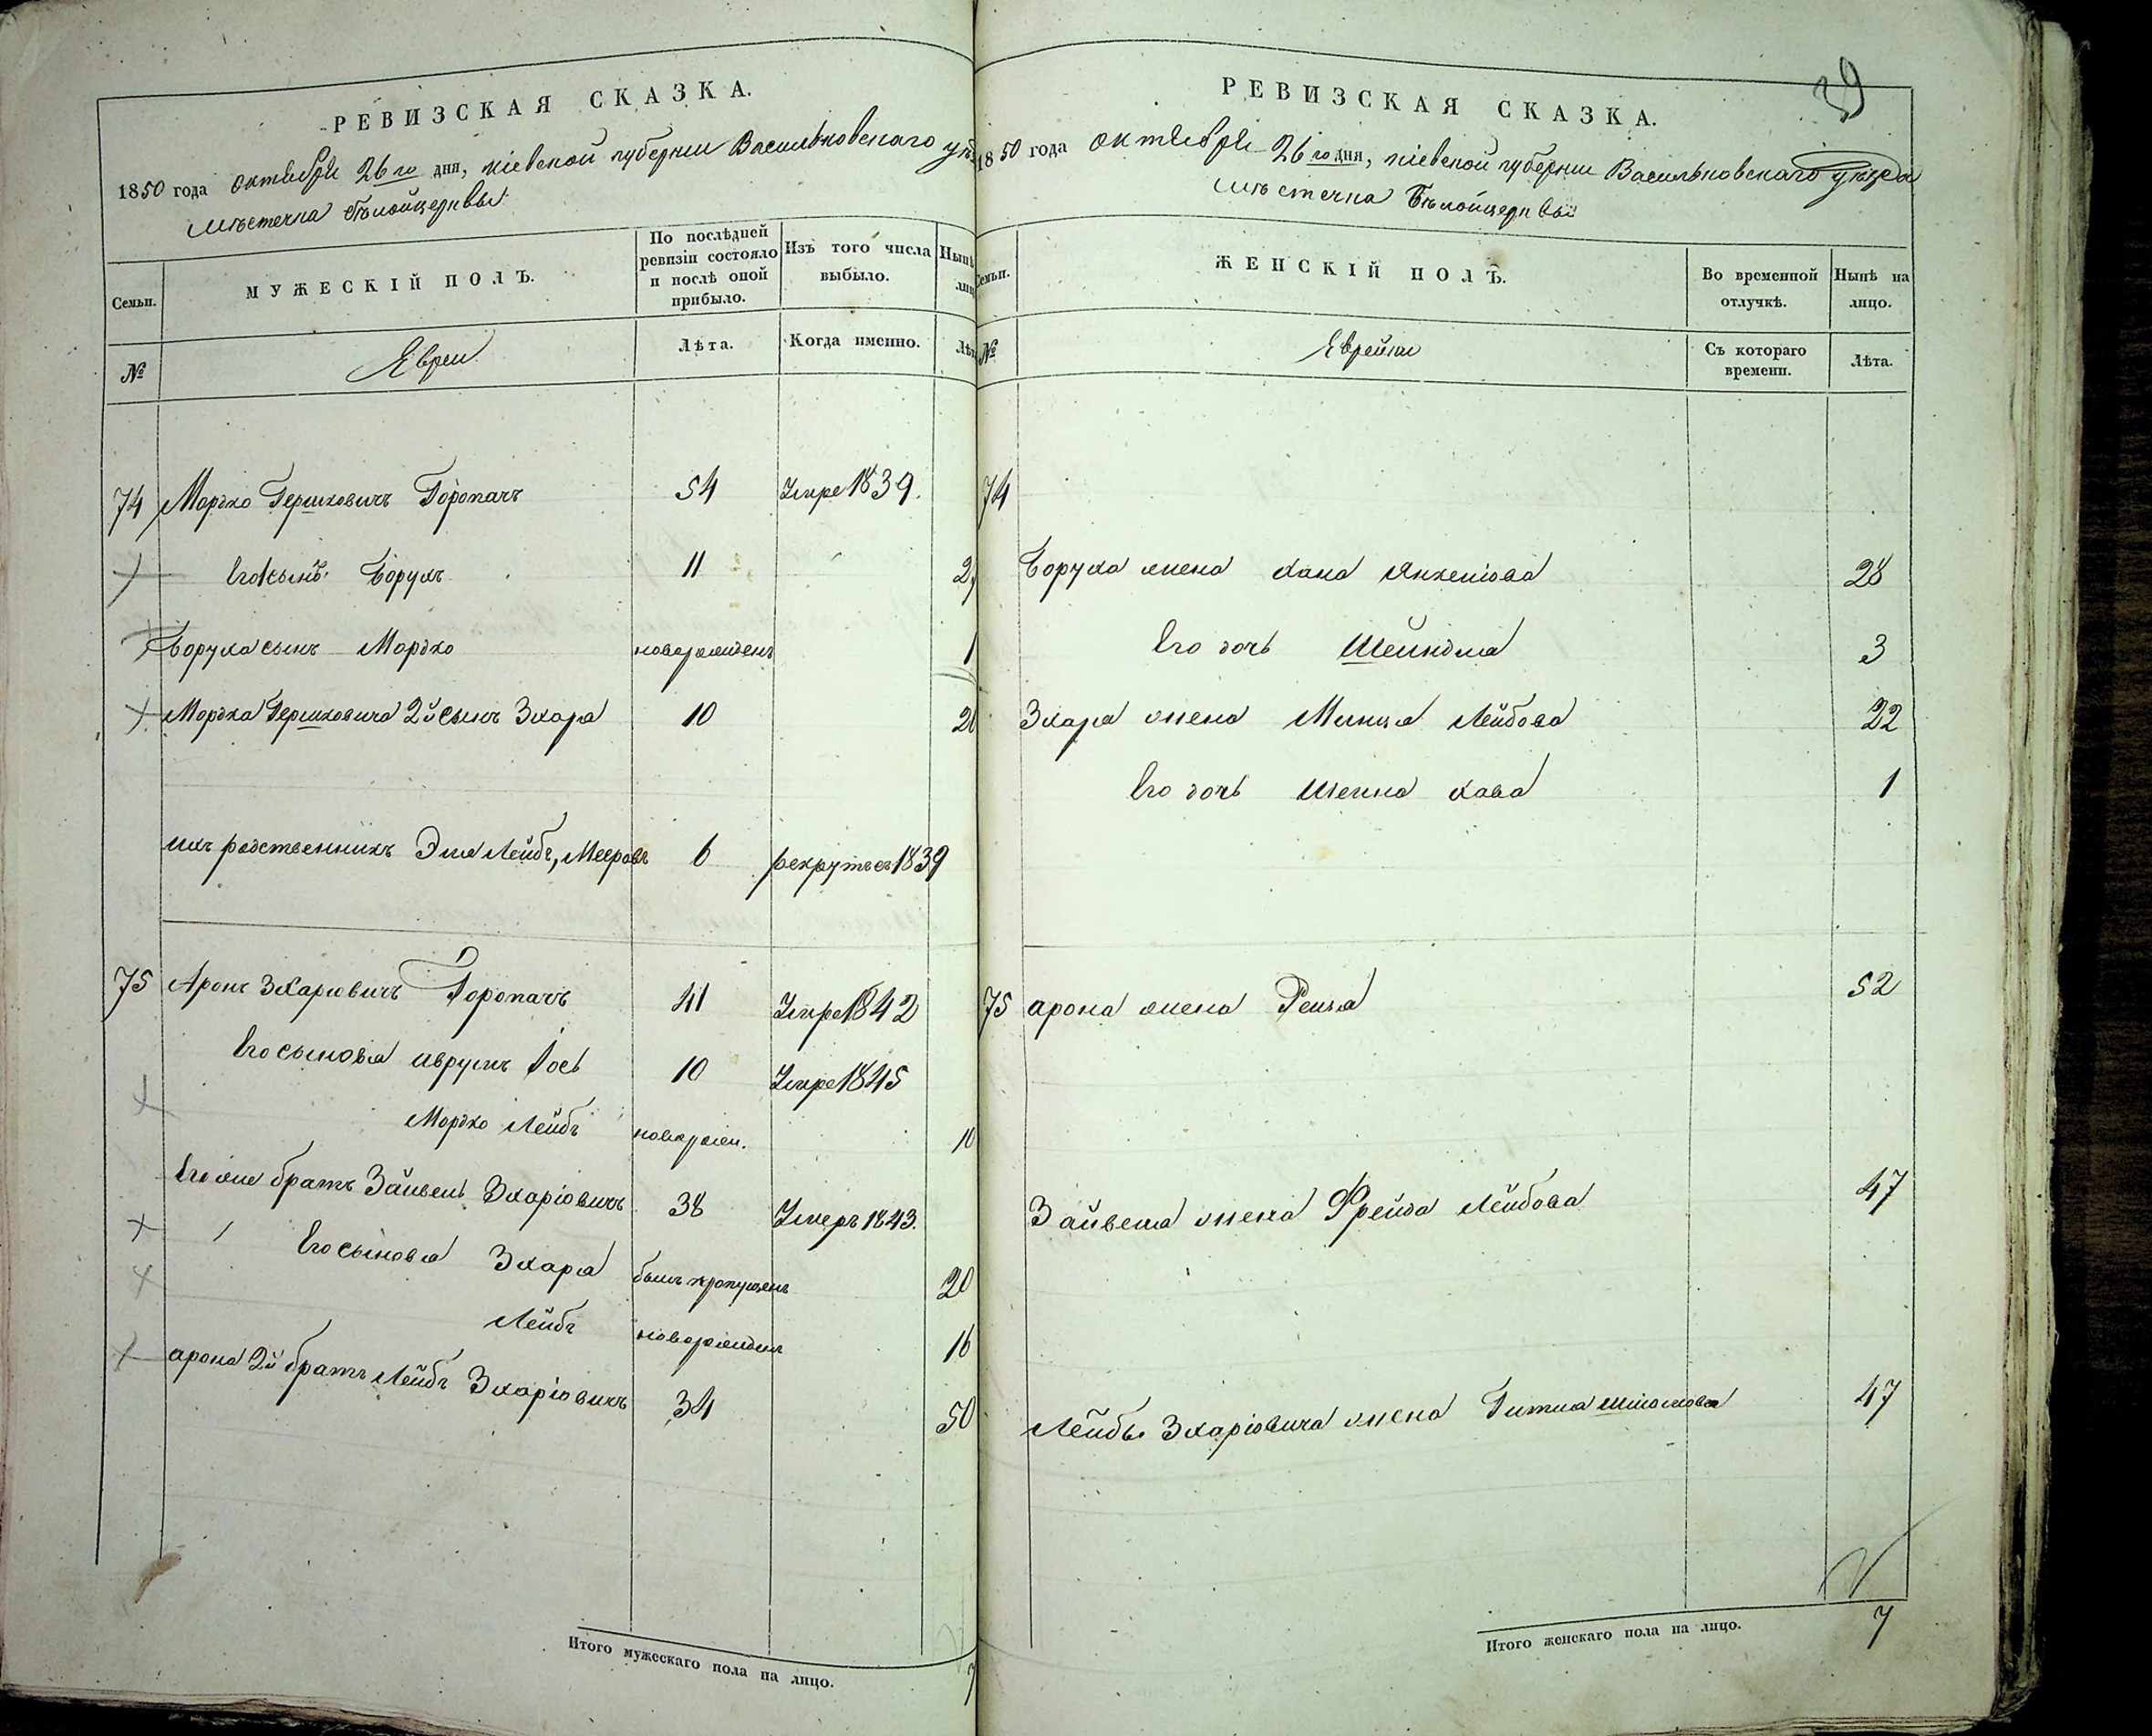 РЕВИЗСКАЯ СКАЗКА.
1850 года октября 26го дня, кіевской губерніи Васильковскаго
мѣстечка Бѣлойцеркви
Семьи.
МУЖЕСКІЙ ПОЛЪ.
По послѣдней ревизіи состояло и послѣ оной прибыло.
Изъ того числа выбыло.
Нынѣ
№
Евреи
Лѣта.
Когда именно.
74 Мордко Гершковичъ Горопачъ 54 Умре 1839.
Его сынъ Борухъ 11
Боруха сынъ Мордко новорожденъ 1
Мордка Гершковича 2й сынъ Зхаря 10
ихъ родственникъ Эля Лейбъ, Мееровъ 6 рекрутъ съ 1839
75 Аронъ Зхаріовичъ Горопачъ 41 Умре 1842
Его сыновья Аврумъ Іось 10 Умре 1845
Мордко Лейбъ новорожд. 10
Его же братъ Зайвель Зхаріовичъ 38 Умеръ 1843.
Его сыновья Зхаря былъ пропущенъ 20
Лейбъ новорожденъ 16
Арона 2й братъ Лейбъ Зхаріовичъ 34 50
Итого мужескаго пола на лицо. 7
39
РЕВИЗСКАЯ СКАЗКА.
1850 года октября 26го дня, кіевской губерніи Васильковскаго уѣзда
мѣстечка Бѣлойцеркви
Семьи.
ЖЕНСКІЙ ПОЛЪ.
Во временной отлучкѣ.
Нынѣ на лицо.
№
Еврейки
Съ котораго времени.
Лѣта.
74
Боруха жена Хана Янкелiова 28
Его дочь Шейндля 3
Зхаря жена Минця Лейбова 22
Его дочь Шейна Хава 1
75 Арона жена Рейзя 52
Зайвеля жена Фрейда Лейбова 47
Лейбы Зхаріовича жена Гитля Шлiомова 47
Итого женскаго пола на лицо. 7